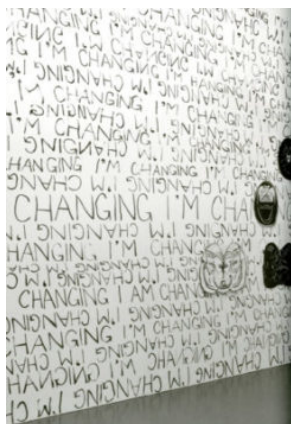 CHANGING I'M CHANGING
I'M CHANGING I'M
CHANGING I'M CHANGING
I'M CHANGING I'M CHANGING
CHANGING I'M CHANGING
I'M CHANGING I'M CHANGING
CHANGING I'M CHANGING
HANGING I'M CHANGING I'M CHANGING
CHANGING I'M CHANGING
CHANGING I'M CHA
CHANGING I'M CHANGING I'M
HANGING I'M CHANGING
CHANGING I'M CHANGING
CHANGING I AM CHAN
CHANGING I'M CHANGING
HANGING I'M CHANGING I'M
CHANGING I'M CHANGING
HANGING I'M CHANGING
I'M CHANGING I'M